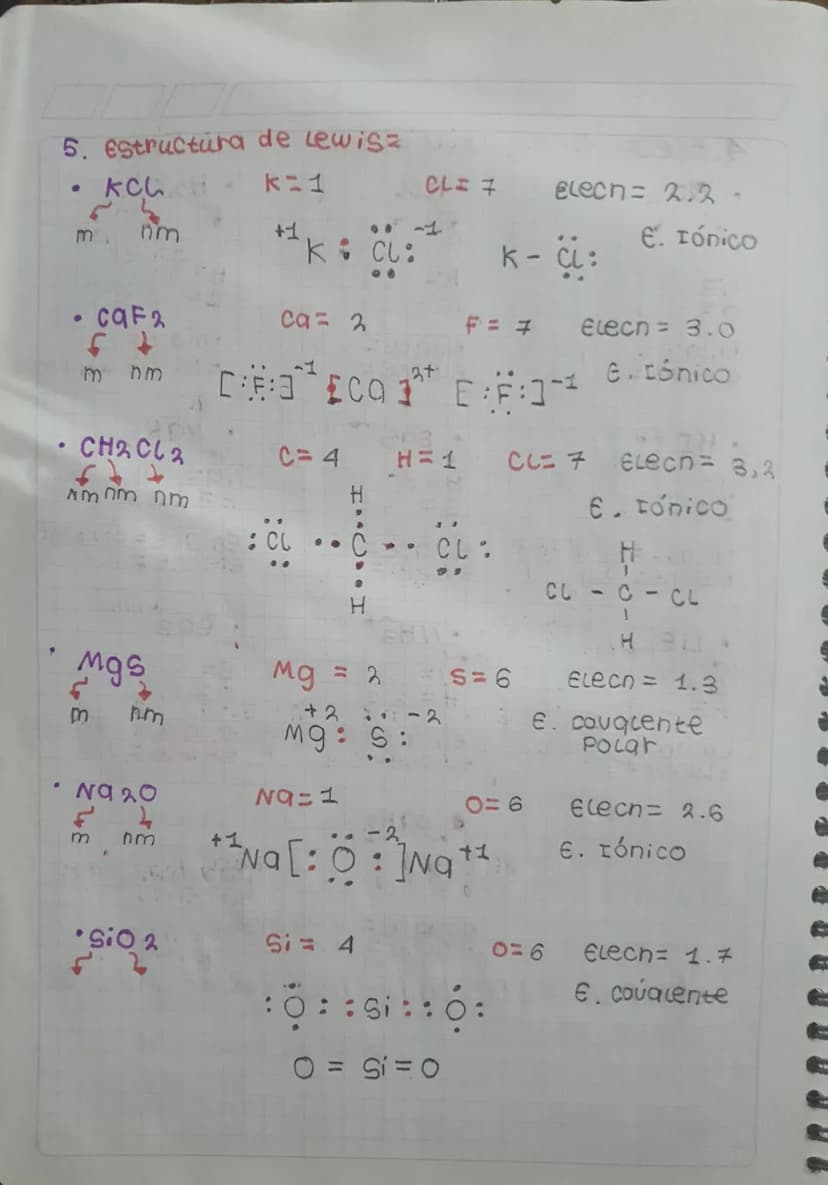 5. Estructura de Lewis:
• KCL K = 1 CL = 7 Elecn = 2.2
m nm +1 K : Cl : -1 K - Cl : E. Iónico
• CaF2 Ca = 2 F = 7 Elecn = 3.0
m nm [:F:]-1 [Ca]2+ [:F:]-1 E. Iónico
• CH2CL2 C = 4 H = 1 CL = 7 Elecn = 3,2
nm nm nm E. Iónico
H H
: Cl •• C •• CL : CL - C - CL
H H
• MgS Mg = 2 S = 6 Elecn = 1.3
m nm +2 -2 E. covalente
Mg : S : Polar
• Na2O Na = 1 O = 6 Elecn = 2.6
m nm +1 Na [: O :] -2 Na +1 E. Iónico
• SiO2 Si = 4 O = 6 Elecn = 1.7
: O : : Si : : O : E. covalente
O = Si = O